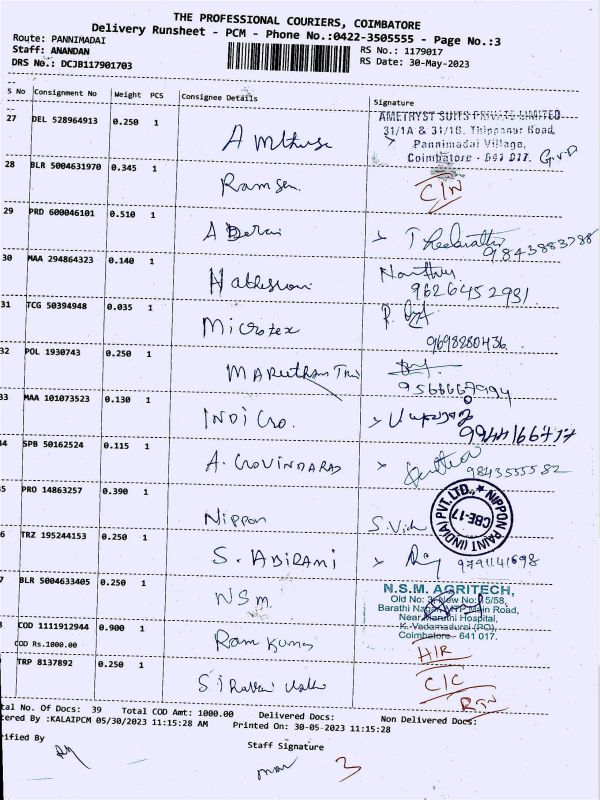 THE PROFESSIONAL COURIERS, COIMBATORE
Delivery Runsheet - PCM - Phone No.:0422-3505555 - Page No.:3
Route: PANNIMADAI
Staff: ANANDAN
RS No.: 1179017
DRS No.: DCJB117901703
RS Date: 30-May-2023
S No Consignment No Weight PCS Consignee Details Signature
27 DEL 528964913 0.250 1
AMETHYST SUITS PRIVATE LIMITED
31/1A & 31/1B, Thippanar Road,
Pannimadai Village,
Coimbatore - 641 017.
28 BLR 5004631970 0.345 1 Ramsen C/N
29 PRD 600046101 0.510 1
9843883788
30 MAA 294864323 0.140 1
9626452931
31 TCG 50394948 0.035 1 Microtex
9698280436
32 POL 1930743 0.250 1
9566667994
33 MAA 101073523 0.130 1 INDICro.
34 SPB 50162524 0.115 1 A. GOVINDARAD
9843555582
35 PRO 14863257 0.390 1 Nippon S. Vich
NIPPON PAINT (INDIA) PVT. LTD.,
CBE-17
36 TRZ 195244153 0.250 1 S. ABIRAMI
9791141698
37 BLR 5004633405 0.250 1 NSM
N.S.M. AGRITECH,
Old No: 3, New No: 5/58,
Barathi Nagar, MTP Main Road,
Near Maruthi Hospital,
K. Vadamadurai (PO),
Coimbatore - 641 017.
38 COD 1111912944 0.900 1 Ram Kumar H/R
COD Rs.1000.00
39 TRP 8137892 0.250 1 C/C
RTN
Total No. Of Docs: 39 Total COD Amt: 1000.00 Delivered Docs: Non Delivered Docs:
Entered By :KALAIPCM 05/30/2023 11:15:28 AM Printed On: 30-05-2023 11:15:28
Verified By
Staff Signature
3